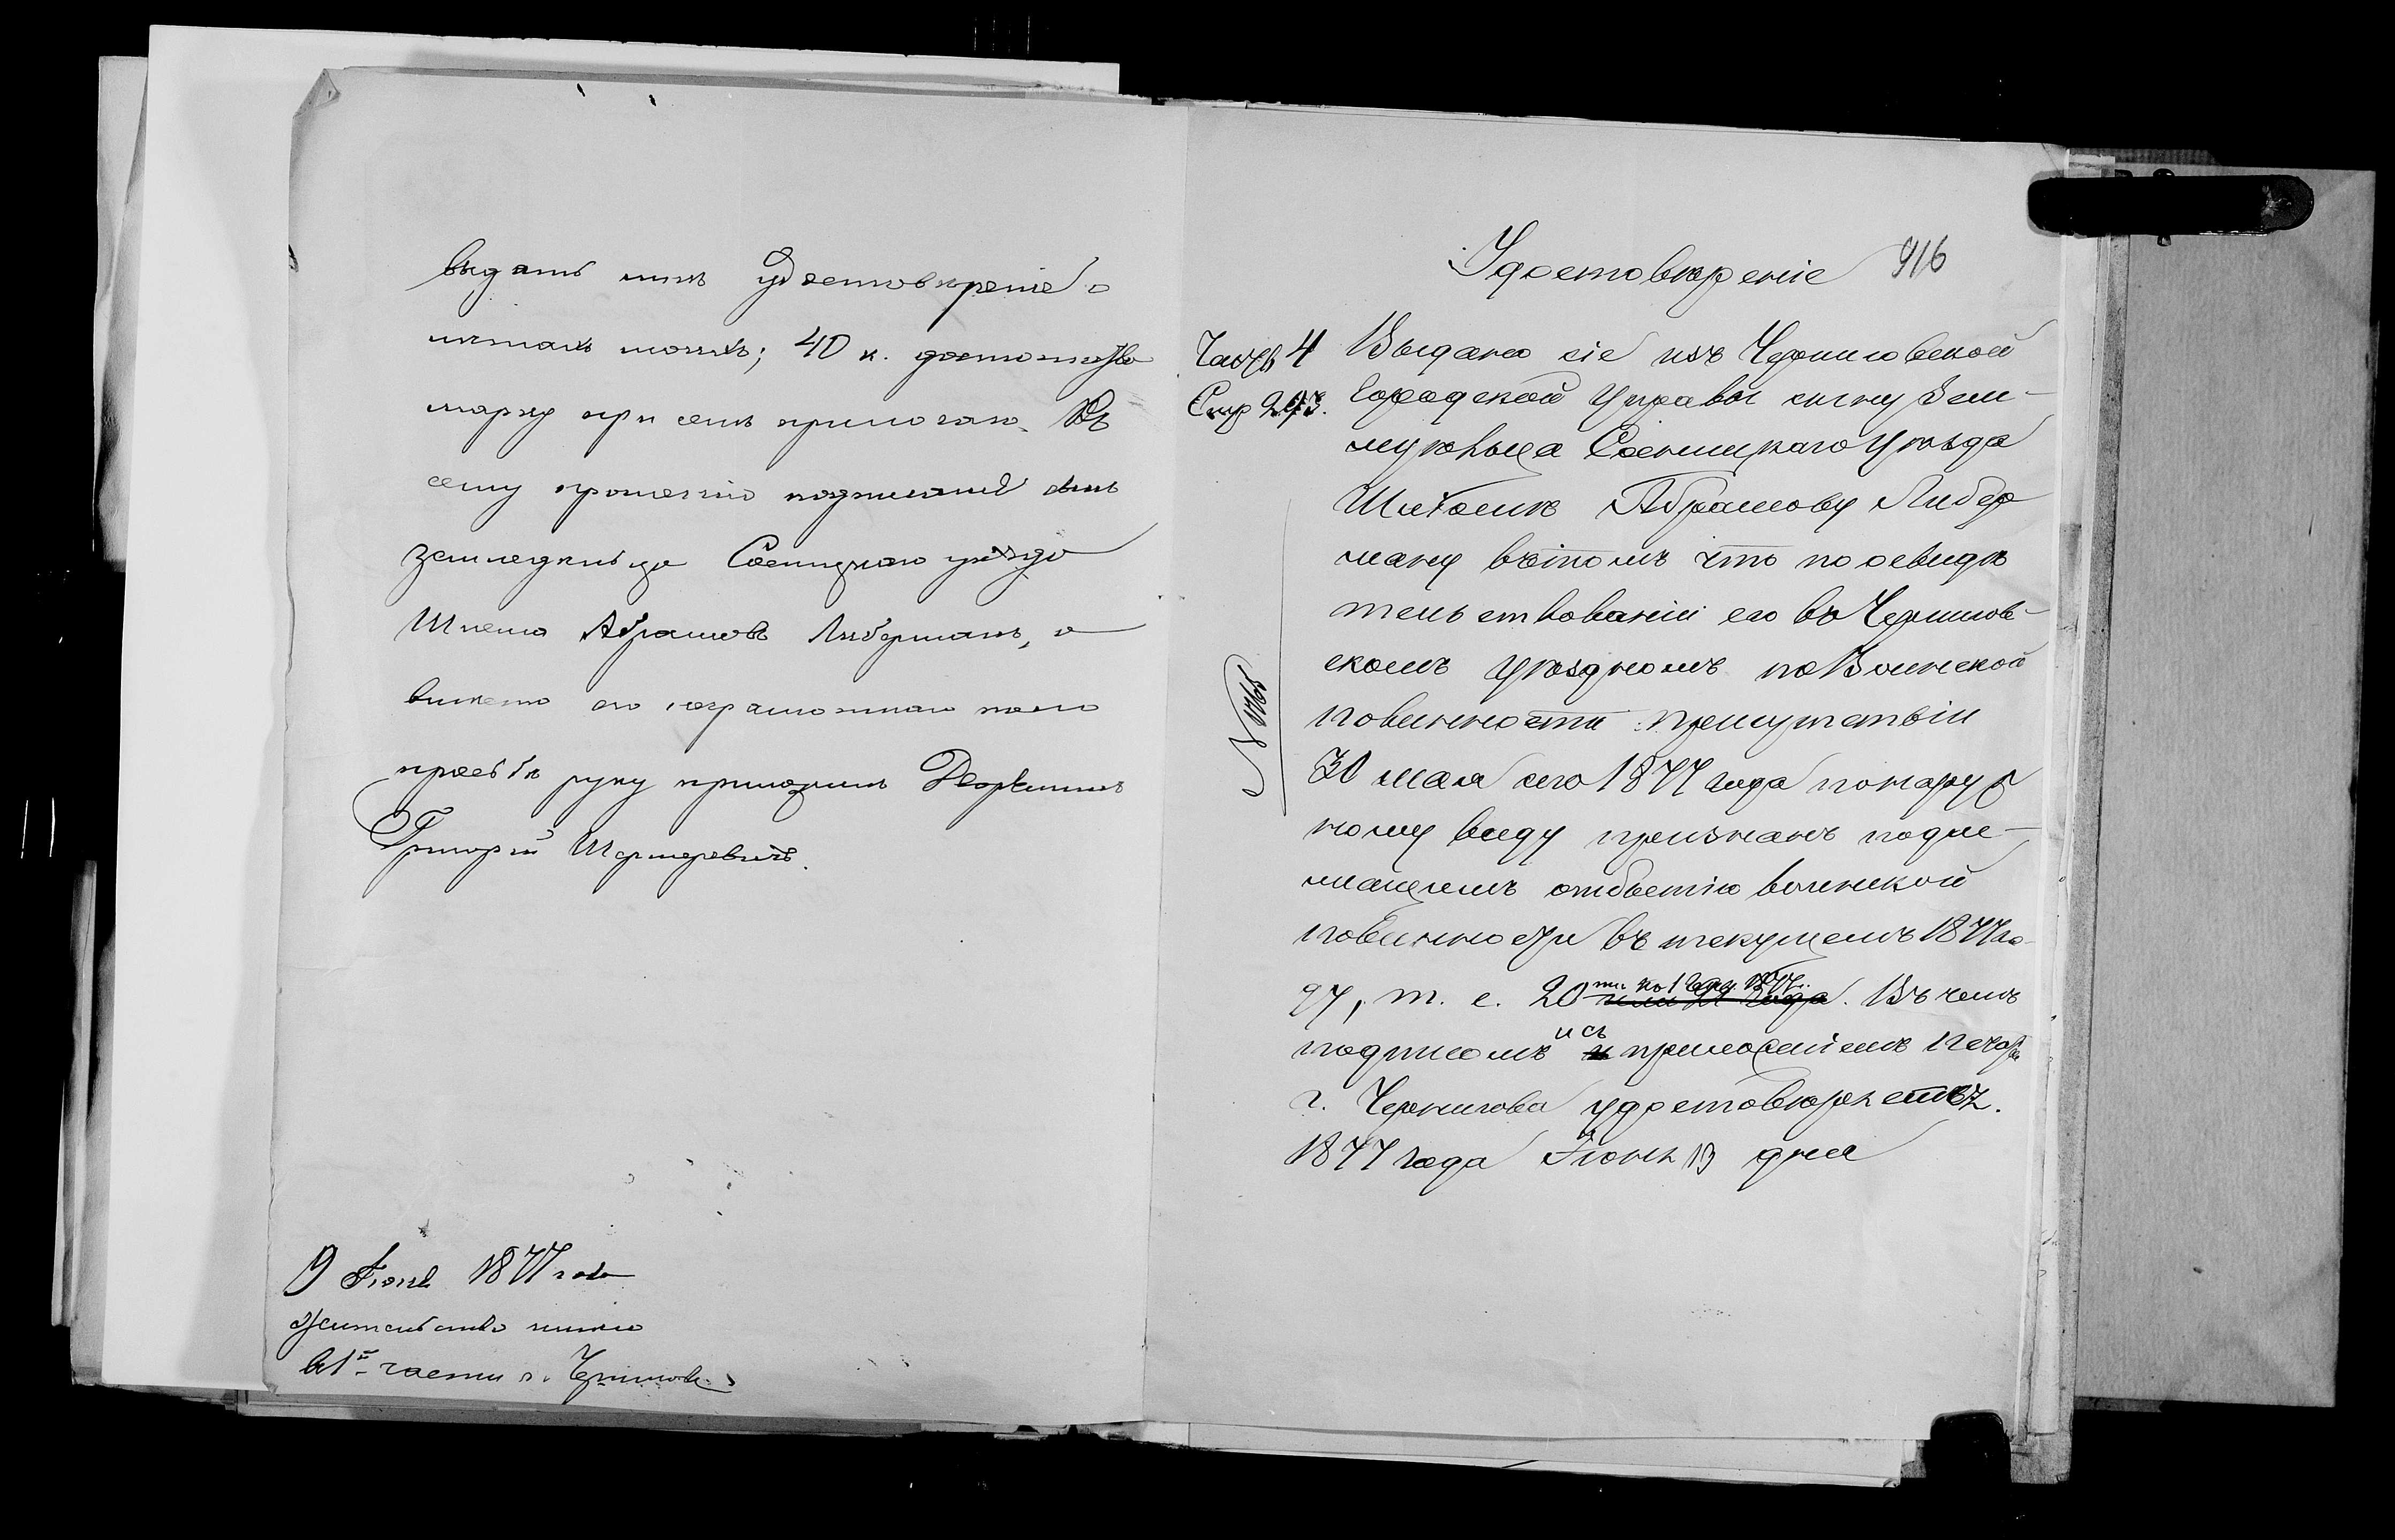 выдать мнѣ удостовѣреніе о
лѣтахъ моихъ; 40 к. достоинства
марку при семъ прилагаю. Къ
сему прошенію подписался сынъ
земледѣльца Сосницкаго уѣзда
Шлема Абрамовъ Либерманъ, а
вмѣсто его неграмотнаго по его
просьбѣ руку приложилъ Дворянинъ
Григорій
9 Іюня 1877 года
жительство имѣю
въ 1й части г. Чернигова
Удостовѣреніе 916
Часть 4
Стр 293.
№ 1765
Выдано сіе изъ Черниговской
Городской Управы сыну Зем-
ледѣльца Сосницкаго Уѣзда
Шлёомѣ Абрамову Либер
ману въ томъ что по освидѣ
тельствованіи его въ Чернигов-
скомъ Уѣздномъ по Воинской
повинности присутствіи
30 мая сего 1877 года по наруж
ному виду признанъ подле-
жащимъ отбытію воинской
повинности въ текущемъ 1877 го-
ду, т. е. 20 ти по 1 Генв. 1877 г. или 21 года. Въ чемъ
подписомъ и съ и приложеніемъ печати
г. Чернигова удостовѣряетъ.
1877 года Іюня 13 дня